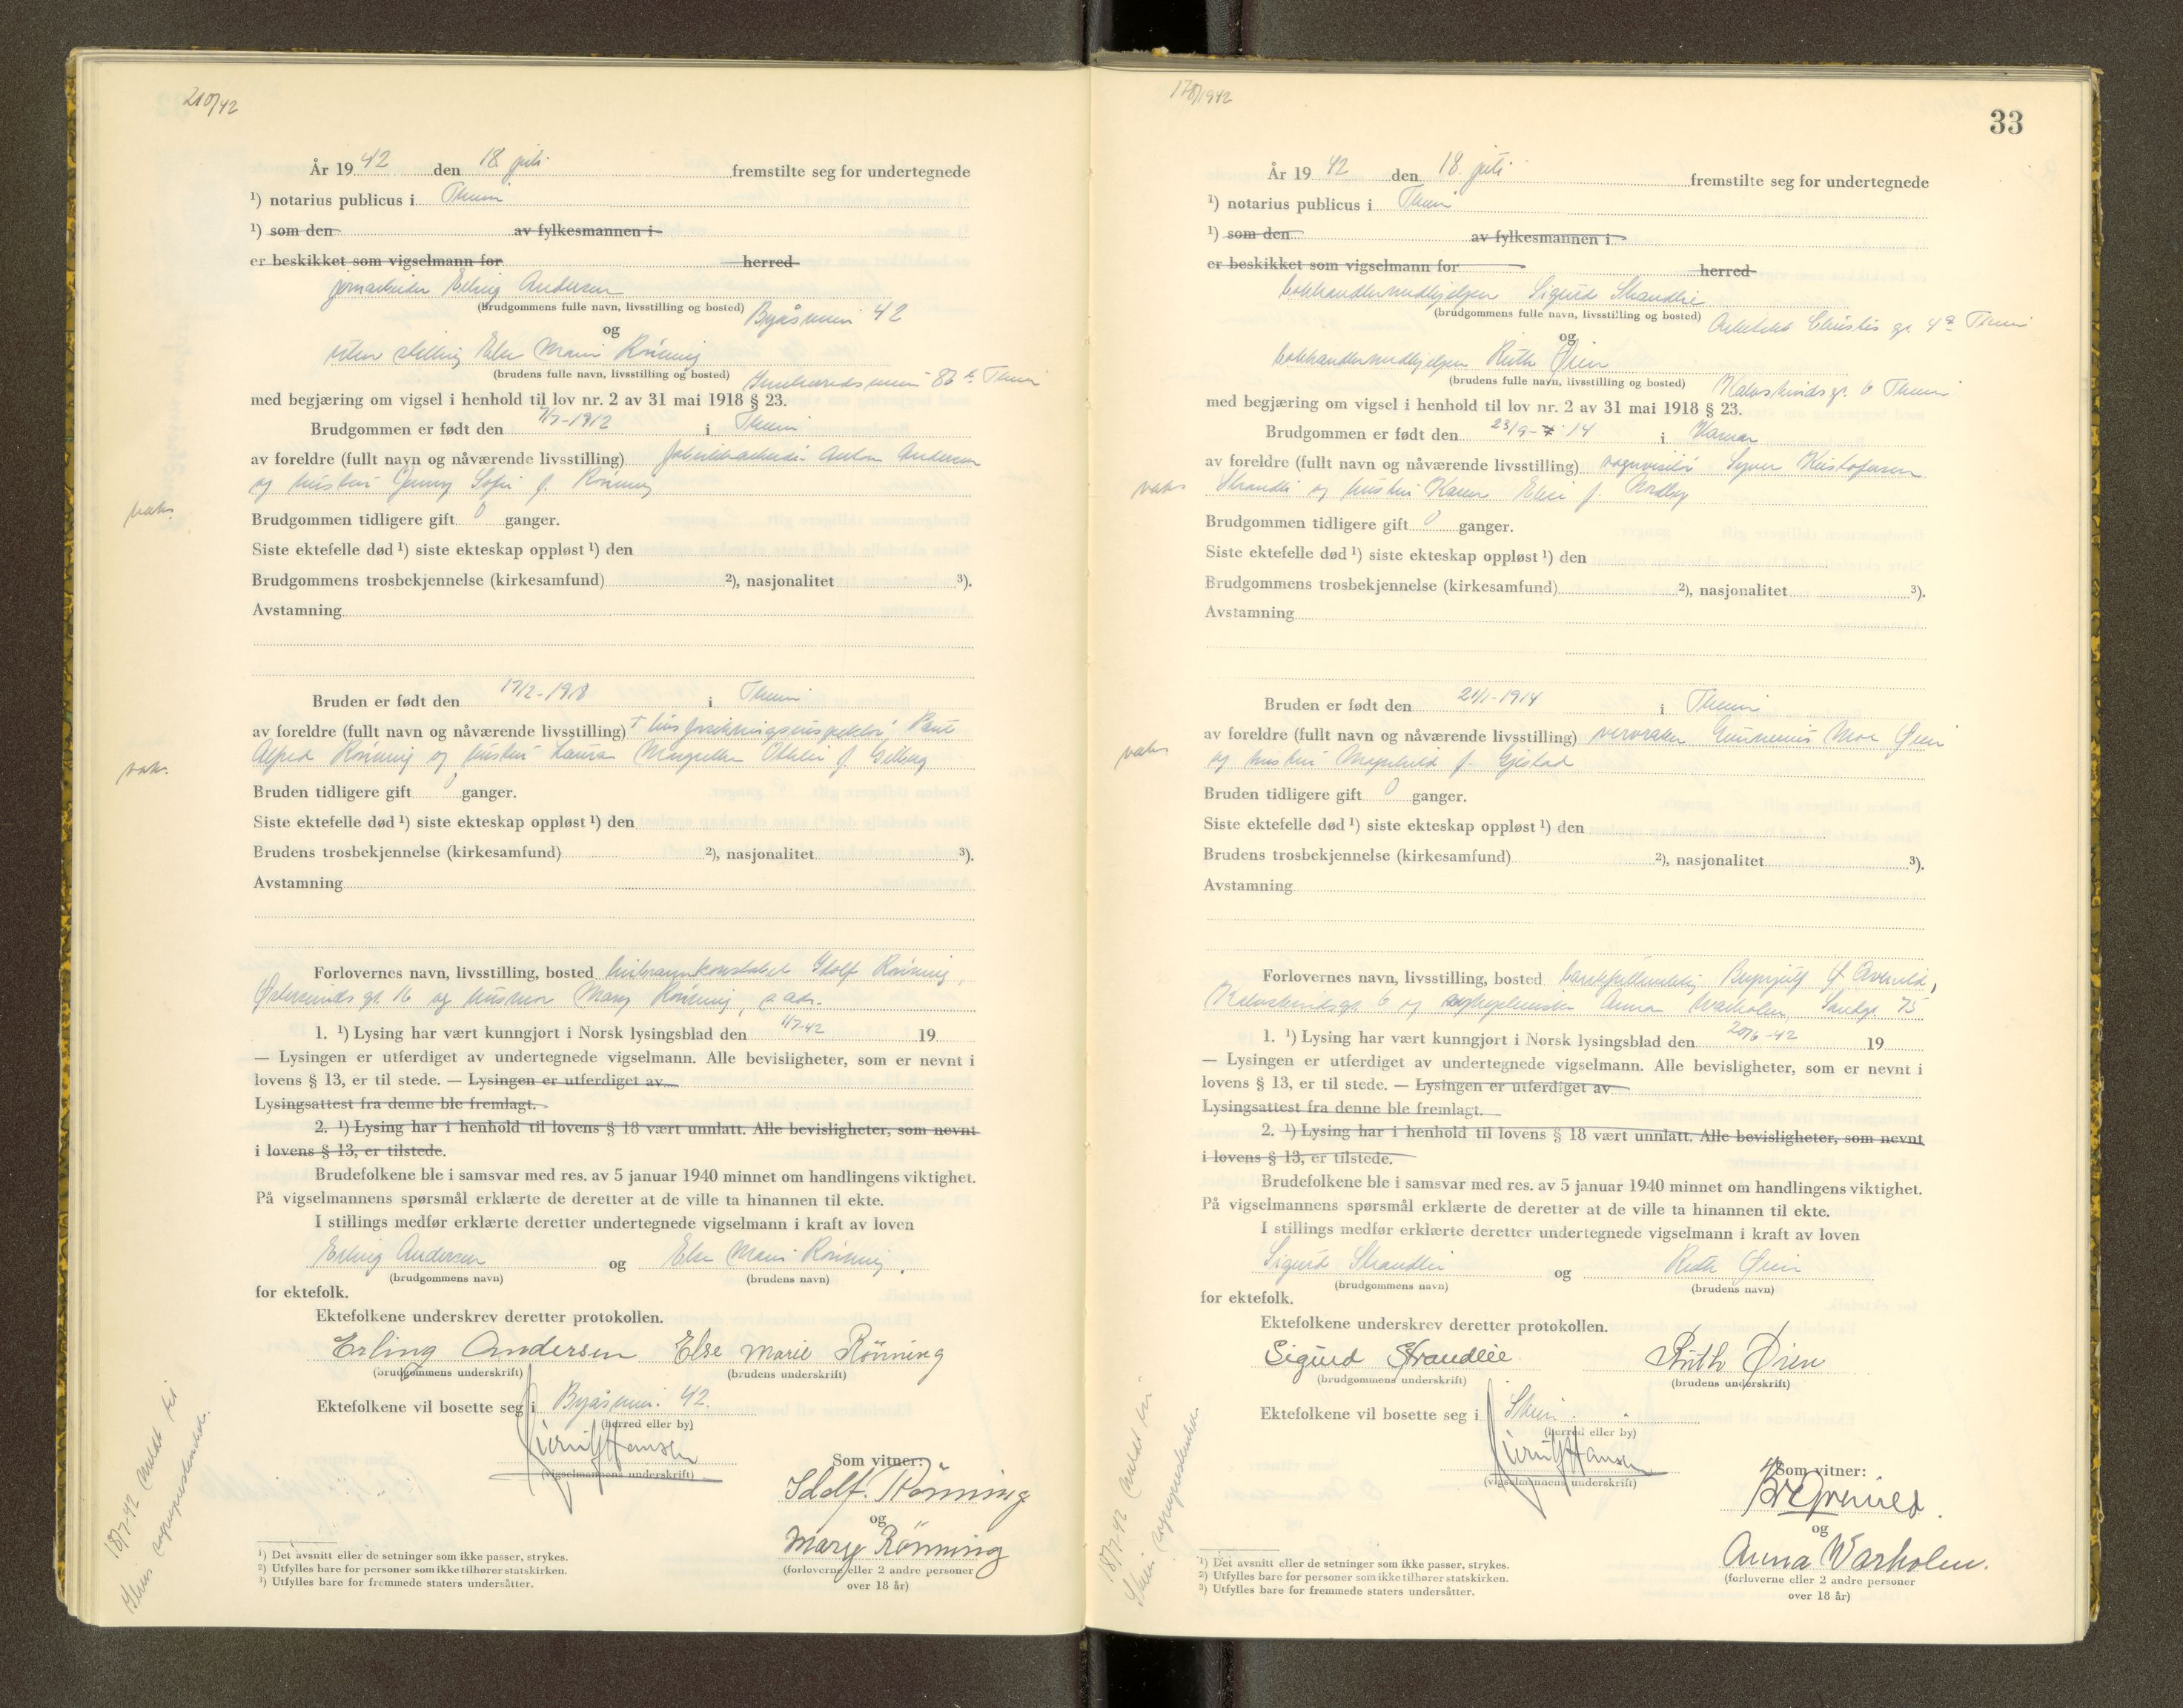 210/42
År 1942 den 18. juli fremstilte seg for undertegnede
¹) notarius publicus i Theim
¹) som den av fylkesmannen i
er beskikket som vigselmann for herred
jernarbeider Erling Andersen
(brudgommens fulle navn, livsstilling og bosted) Byåsveien 42
og
uten stilling Else Marie Rönning
(brudens fulle navn, livsstilling og bosted) Innherredsveien 83 b. Theim
med begjæring om vigsel i henhold til lov nr. 2 av 31 mai 1918 § 23.
Brudgommen er født den 7/7-1912 i Theim
av foreldre (fullt navn og nåværende livsstilling) fabrikkarbeider Anton Andersen
og hustru Jenny Sofie f. Rönning
vaks.
Brudgommen tidligere gift 0 ganger.
Siste ektefelle død ¹) siste ekteskap oppløst ¹) den
Brudgommens trosbekjennelse (kirkesamfund) ²), nasjonalitet ³).
Avstamning
Bruden er født den 17/2-1918 i Theim
av foreldre (fullt navn og nåværende livsstilling) Paul
Alfred Rönning og hustru Laura Margrethe Othilie f.
vaks.
Bruden tidligere gift 0 ganger.
Siste ektefelle død ¹) siste ekteskap oppløst ¹) den
Brudens trosbekjennelse (kirkesamfund) ²), nasjonalitet ³).
Avstamning
Forlovernes navn, livsstilling, bosted Idolf Rönning,
gt. 16 og husmor Mary Rönning, s. adr.
1. ¹) Lysing har vært kunngjort i Norsk lysingsblad den 1/7-42 19
— Lysingen er utferdiget av undertegnede vigselmann. Alle bevisligheter, som er nevnt i
lovens § 13, er til stede. — Lysingen er utferdiget av
Lysingsattest fra denne ble fremlagt.
2. ¹) Lysing har i henhold til lovens § 18 vært unnlatt. Alle bevisligheter, som nevnt
i lovens § 13, er tilstede.
Brudefolkene ble i samsvar med res. av 5 januar 1940 minnet om handlingens viktighet.
På vigselmannens spørsmål erklærte de deretter at de ville ta hinannen til ekte.
I stillings medfør erklærte deretter undertegnede vigselmann i kraft av loven
Erling Andersen og Else Marie Rönning.
(brudgommens navn) (brudens navn)
for ektefolk.
Ektefolkene underskrev deretter protokollen.
Erling Andersen Else Marie Rönning
(brudgommens underskrift) (brudens underskrift)
Ektefolkene vil bosette seg i Byåsveien. 42.
(herred eller by)
(vigselmannens underskrift)
Som vitner:
Idolf. Rönning
og
Mary Rönning
(forloverne eller 2 andre personer
over 18 år)
¹) Det avsnitt eller de setninger som ikke passer, strykes.
²) Utfylles bare for personer som ikke tilhører statskirken.
³) Utfylles bare for fremmede staters undersåtter.
18/7-42 meldt til
Theim
170/1942
33
År 1942 den 18. juli fremstilte seg for undertegnede
¹) notarius publicus i Theim
¹) som den av fylkesmannen i
er beskikket som vigselmann for herred
bokhandlermedhjelper Sigurd Strandlie
(brudgommens fulle navn, livsstilling og bosted) Arkitekt Christies gt. 4a Theim
og
bokhandlermedhjelper Ruth Øien
(brudens fulle navn, livsstilling og bosted) Kalvskindsgt. 6 Theim
med begjæring om vigsel i henhold til lov nr. 2 av 31 mai 1918 § 23.
Brudgommen er født den 23/9-14 i Hamar
av foreldre (fullt navn og nåværende livsstilling) vognvisitør Syver Kristofersen
vaks Strandlie og hustru Karen Elise f. Nordby
Brudgommen tidligere gift 0 ganger.
Siste ektefelle død ¹) siste ekteskap oppløst ¹) den
Brudgommens trosbekjennelse (kirkesamfund) ²), nasjonalitet ³).
Avstamning
Bruden er født den 21/1-1914 i Theim
av foreldre (fullt navn og nåværende livsstilling) Moe Øien
vaks og hustru f. Gjelstad
Bruden tidligere gift 0 ganger.
Siste ektefelle død ¹) siste ekteskap oppløst ¹) den
Brudens trosbekjennelse (kirkesamfund) ²), nasjonalitet ³).
Avstamning
Forlovernes navn, livsstilling, bosted Brynjulf
Kalvskindsgt. 6 og Anna Warholm, Sandgt. 75
1. ¹) Lysing har vært kunngjort i Norsk lysingsblad den 20/6-42 19
— Lysingen er utferdiget av undertegnede vigselmann. Alle bevisligheter, som er nevnt i
lovens § 13, er til stede. — Lysingen er utferdiget av
Lysingsattest fra denne ble fremlagt.
2. ¹) Lysing har i henhold til lovens § 18 vært unnlatt. Alle bevisligheter, som nevnt
i lovens § 13, er tilstede.
Brudefolkene ble i samsvar med res. av 5 januar 1940 minnet om handlingens viktighet.
På vigselmannens spørsmål erklærte de deretter at de ville ta hinannen til ekte.
I stillings medfør erklærte deretter undertegnede vigselmann i kraft av loven
Sigurd Strandlie og Ruth Øien
(brudgommens navn) (brudens navn)
for ektefolk.
Ektefolkene underskrev deretter protokollen.
Sigurd Strandlie Ruth Øien
(brudgommens underskrift) (brudens underskrift)
Ektefolkene vil bosette seg i Theim.
(herred eller by)
(vigselmannens underskrift)
Som vitner:
og
Anna Warholm.
(forloverne eller 2 andre personer
over 18 år)
¹) Det avsnitt eller de setninger som ikke passer, strykes.
²) Utfylles bare for personer som ikke tilhører statskirken.
³) Utfylles bare for fremmede staters undersåtter.
18/7-42 meldt til
Theim